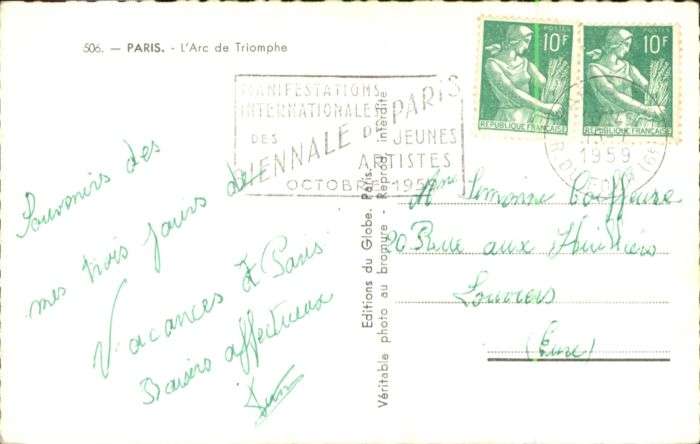 506. — PARIS. - L'Arc de Triomphe
10F
RÉPUBLIQUE FRANÇAISE
10F
RÉPUBLIQUE FRANÇAISE
MANIFESTATIONS
INTERNATIONALES
BIENNALE DE PARIS
DES JEUNES
ARTISTES
OCTOBRE 1959
1959
Souvenirs des
mes trois jours de
Vacances à Paris
Baisers affectueux
Editions du Globe. Paris.
Véritable photo au bromure - Reprod. interdite
Simonne Coiffeuse
Rue aux
Louviers
(Eure)